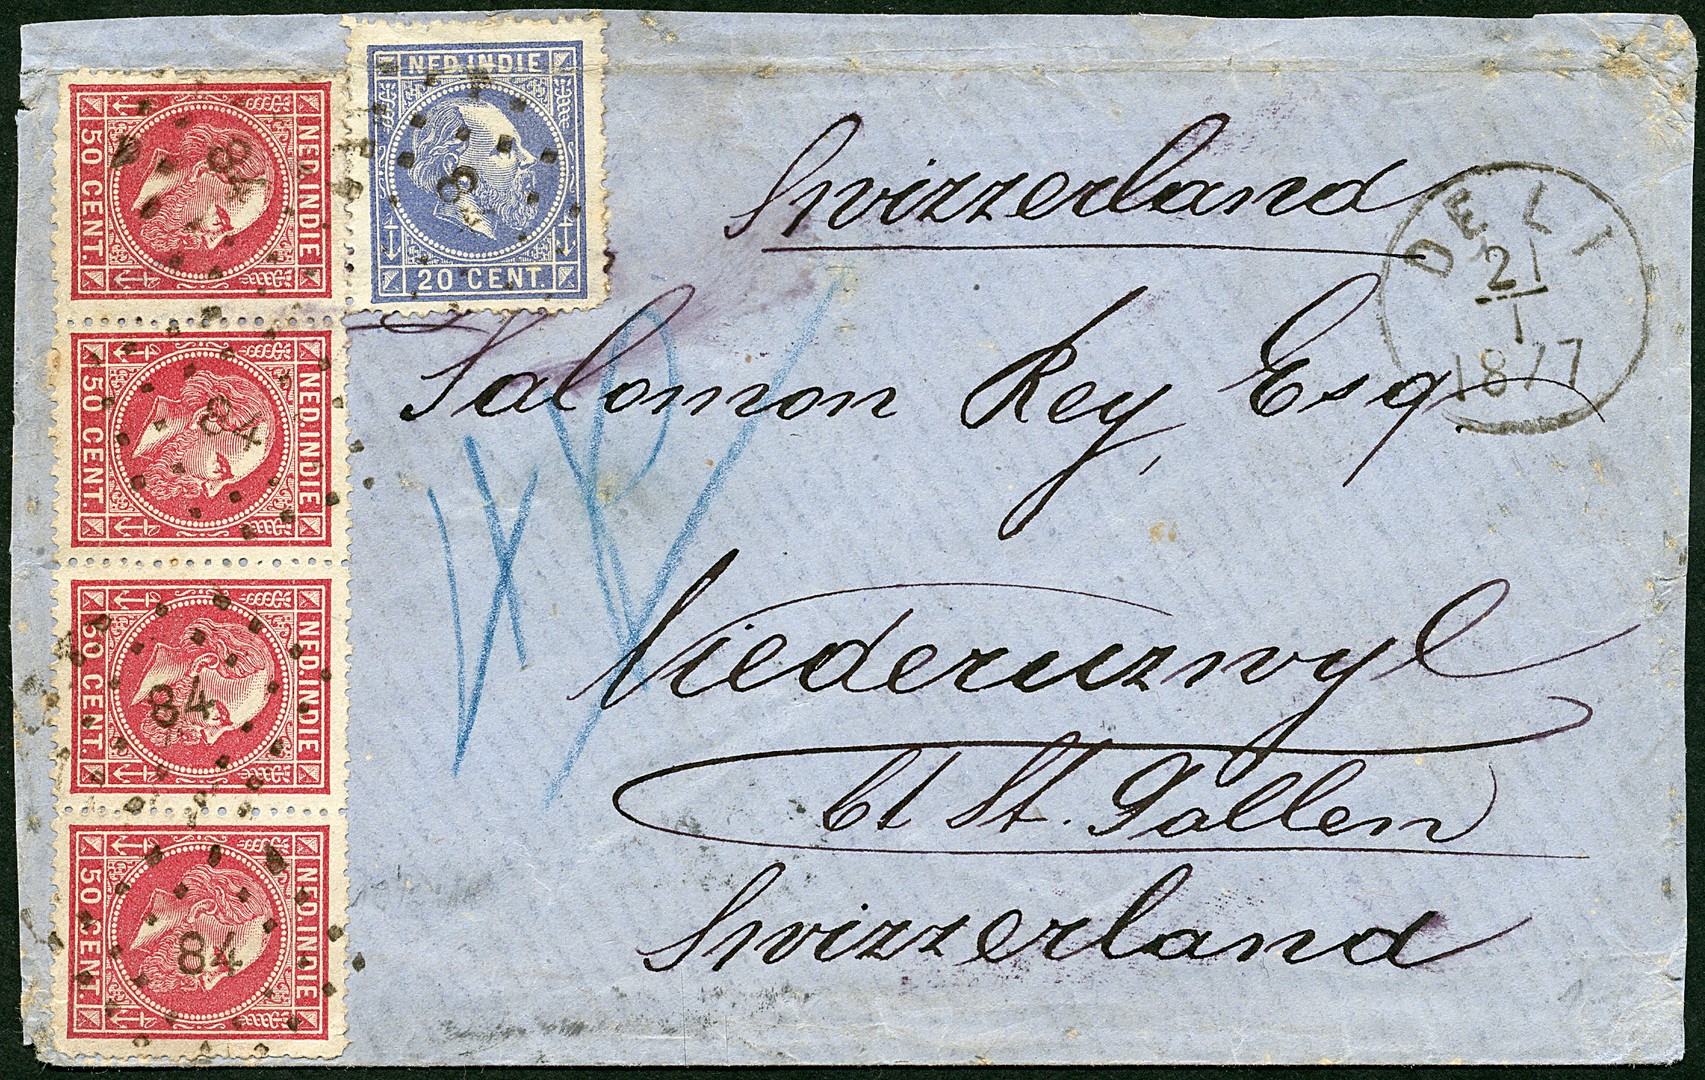 NED. INDIE
20 CENT.
84
NED. INDIE
50 CENT.
84
NED. INDIE
50 CENT.
84
NED. INDIE
50 CENT.
84
NED. INDIE
50 CENT.
84
DELI
21
1
1877
Switzerland
Salomon Rey, Esq.
Niederuzwyl
Ct St. Gallen
Switzerland